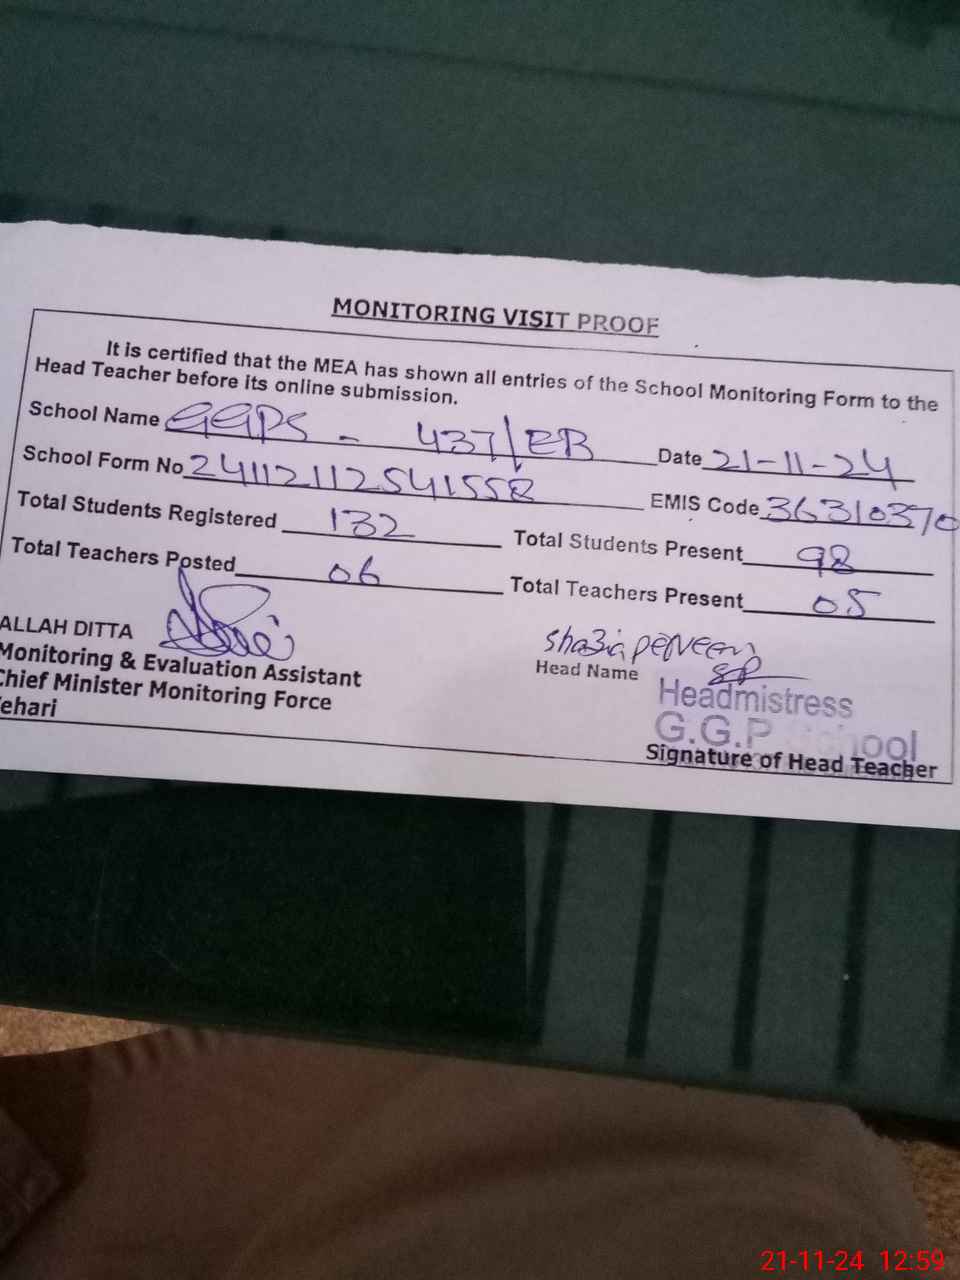 MONITORING VISIT PROOF
It is certified that the MEA has shown all entries of the School Monitoring Form to the
Head Teacher before its online submission.
School Name GGPS - 437/EB Date 21-11-24
School Form No 24112112541558 EMIS Code 36310370
Total Students Registered 132 Total Students Present 98
Total Teachers Posted 06 Total Teachers Present 05
ALLAH DITTA
Monitoring & Evaluation Assistant
Chief Minister Monitoring Force
ehari
Shazia perveen
Head Name
Headmistress
G.G.P School
Signature of Head Teacher
21-11-24 12:59